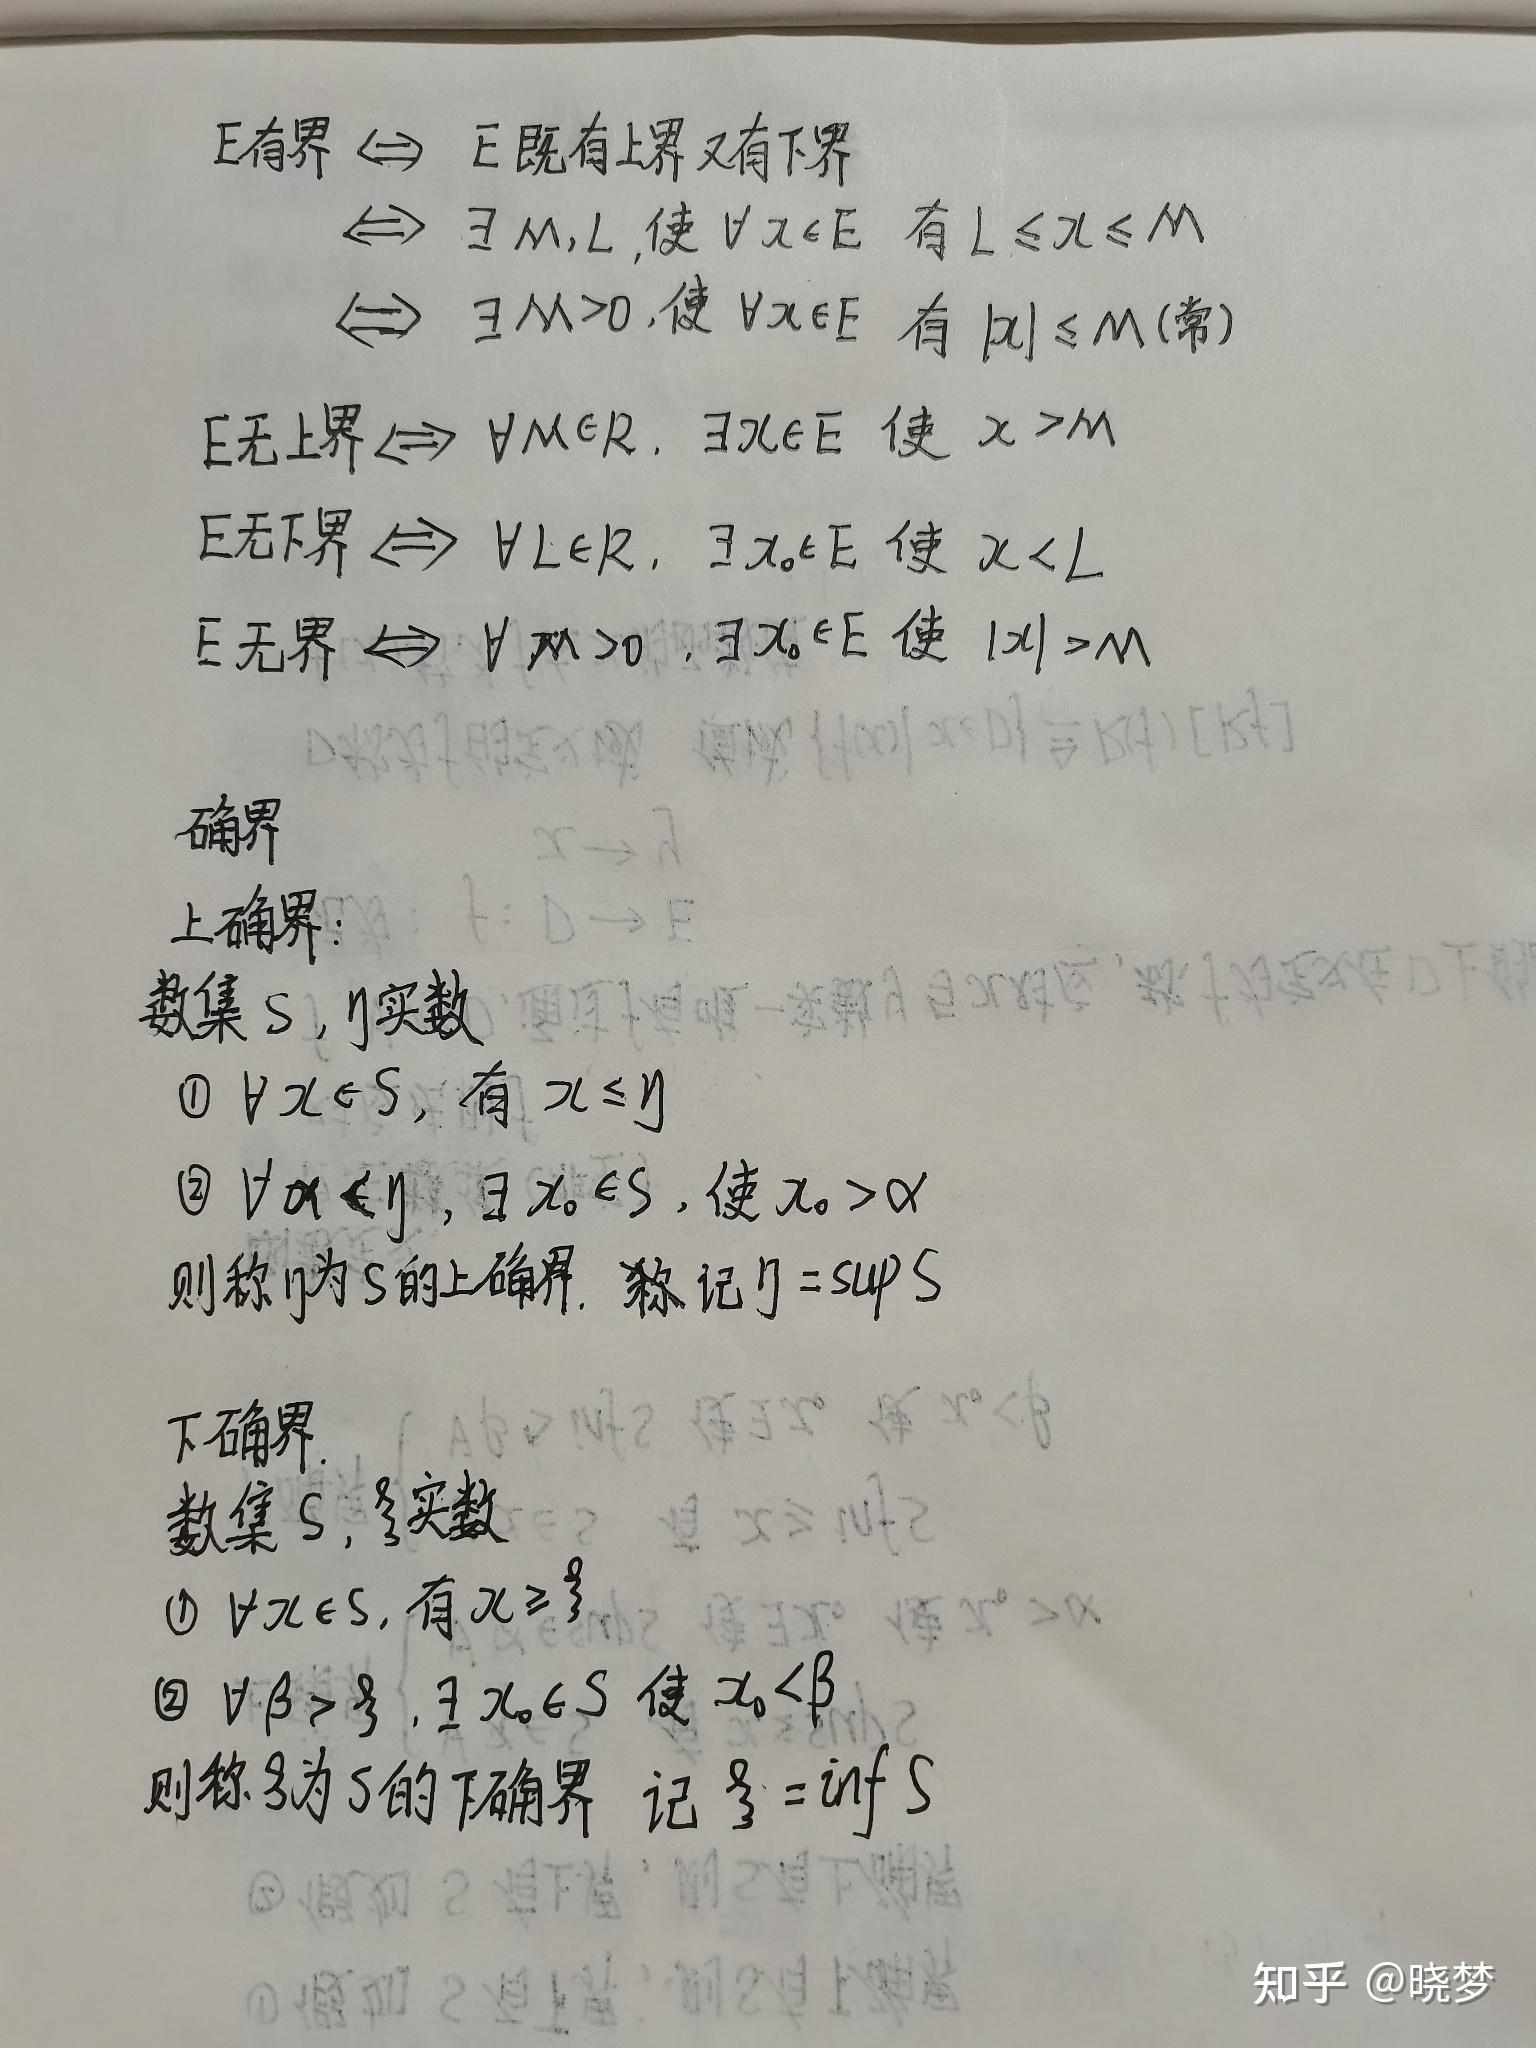 E有界 ⇔ E既有上界又有下界
⇔ ∃M,L,使 ∀x∈E 有 L≤x≤M
⇔ ∃M>0,使 ∀x∈E 有 |x|≤M(常)
E无上界 ⇔ ∀M∈R, ∃x∈E 使 x>M
E无下界 ⇔ ∀L∈R, ∃x₀∈E 使 x<L
E无界 ⇔ ∀M>0, ∃x₀∈E 使 |x|>M
确界
上确界:
数集S,η实数
① ∀x∈S, 有 x≤η
② ∀α<η, ∃x₀∈S, 使 x₀>α
则称η为S的上确界. 记η=sup S
下确界.
数集S,ξ实数
① ∀x∈S, 有x≥ξ
② ∀β>ξ, ∃x₀∈S 使 x₀<β
则称ξ为S的下确界 记ξ=inf S
知乎 @晓梦